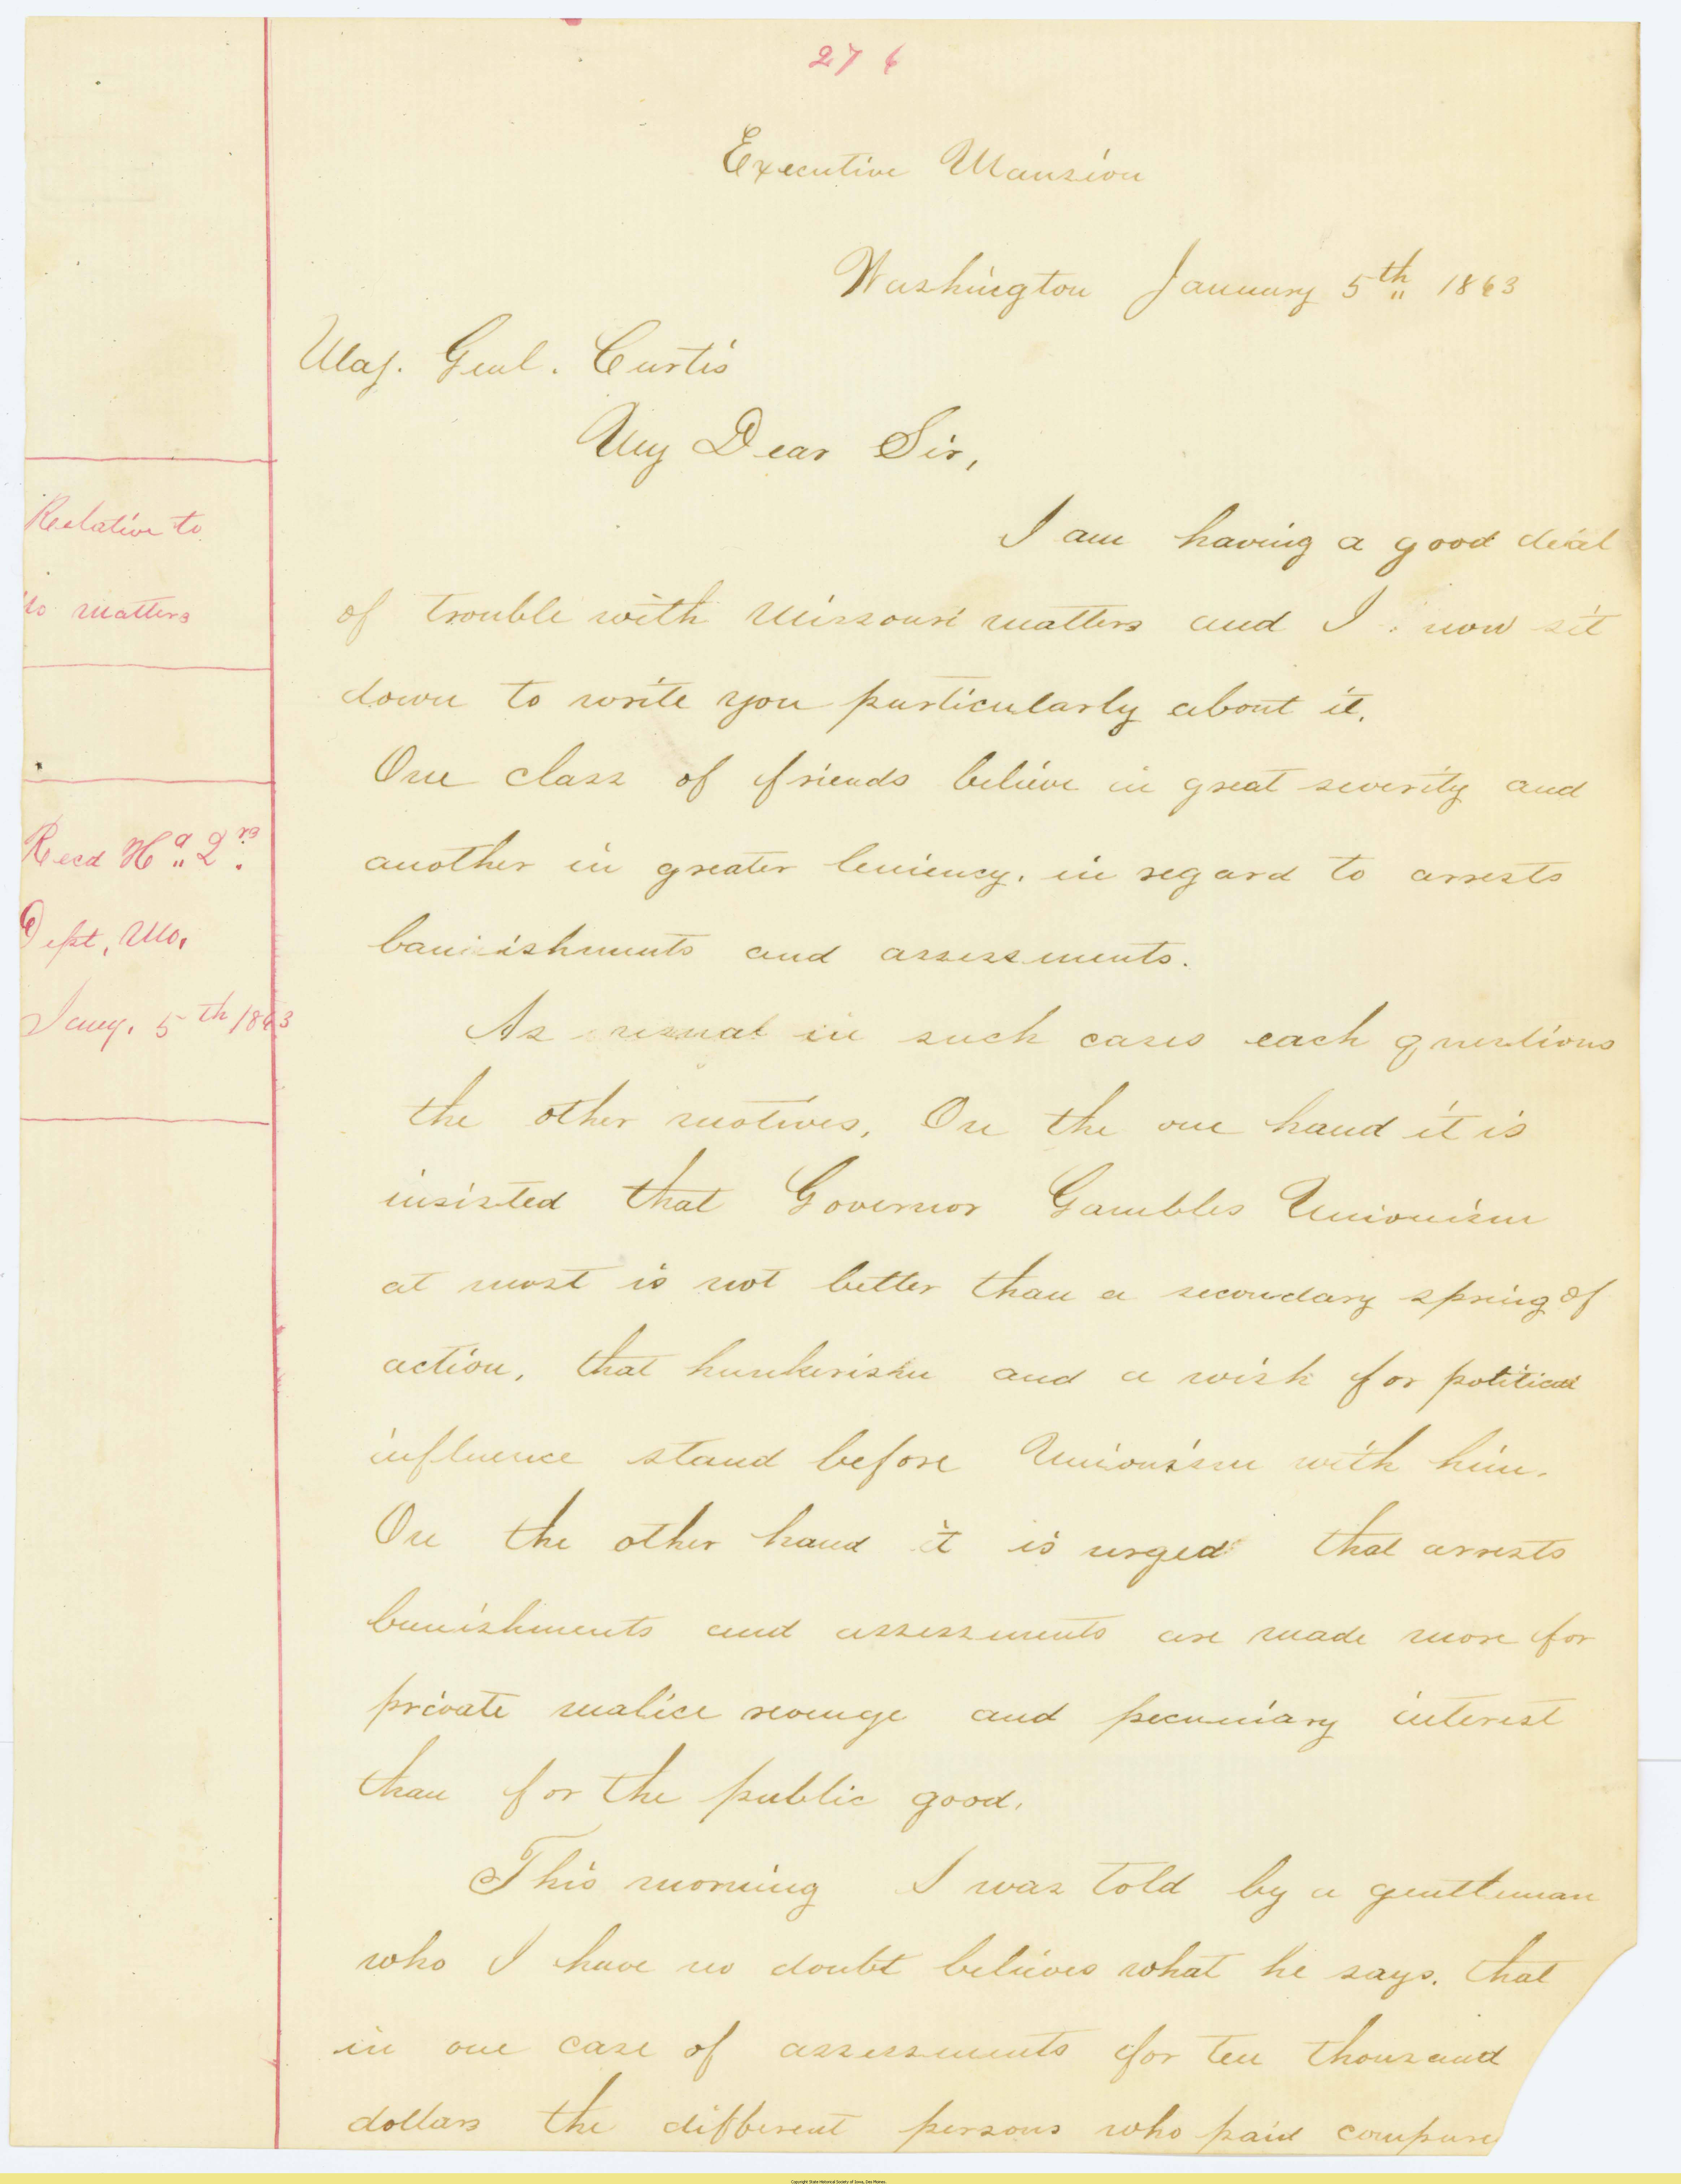 276
Executive Mansion
Washington January 5th 1863
Maj. Genl. Curtis
My Dear Sir,
I am having a good deal
of trouble with Missouri matters and I now sit
down to write you particularly about it.
One class of friends believe in great severity and
another in greater leniency, in regard to arrests
bannishments and assessments.
As usual in such cases each questions
the other motives, On the one hand it is
insisted that Governor Gambles Unionism
at most is not better than a secondary spring of
action, that hunkerishm and a wish for political
influence stand before Unionism with him.
On the other hand it is urged that arrests
banishments and assessments are made more for
private malice revenge and pecuniary interest
than for the public good.
This morning I was told by a gentleman
who I have no doubt believes what he says. that
in one case of assessments for ten thousand
dollars the different persons who paid compared
Relative to
Mo matters
Recd Hd. Qrs.
Dept, Mo,
Jany. 5th 1863
Copyright State Historical Society of Iowa, Des Moines.